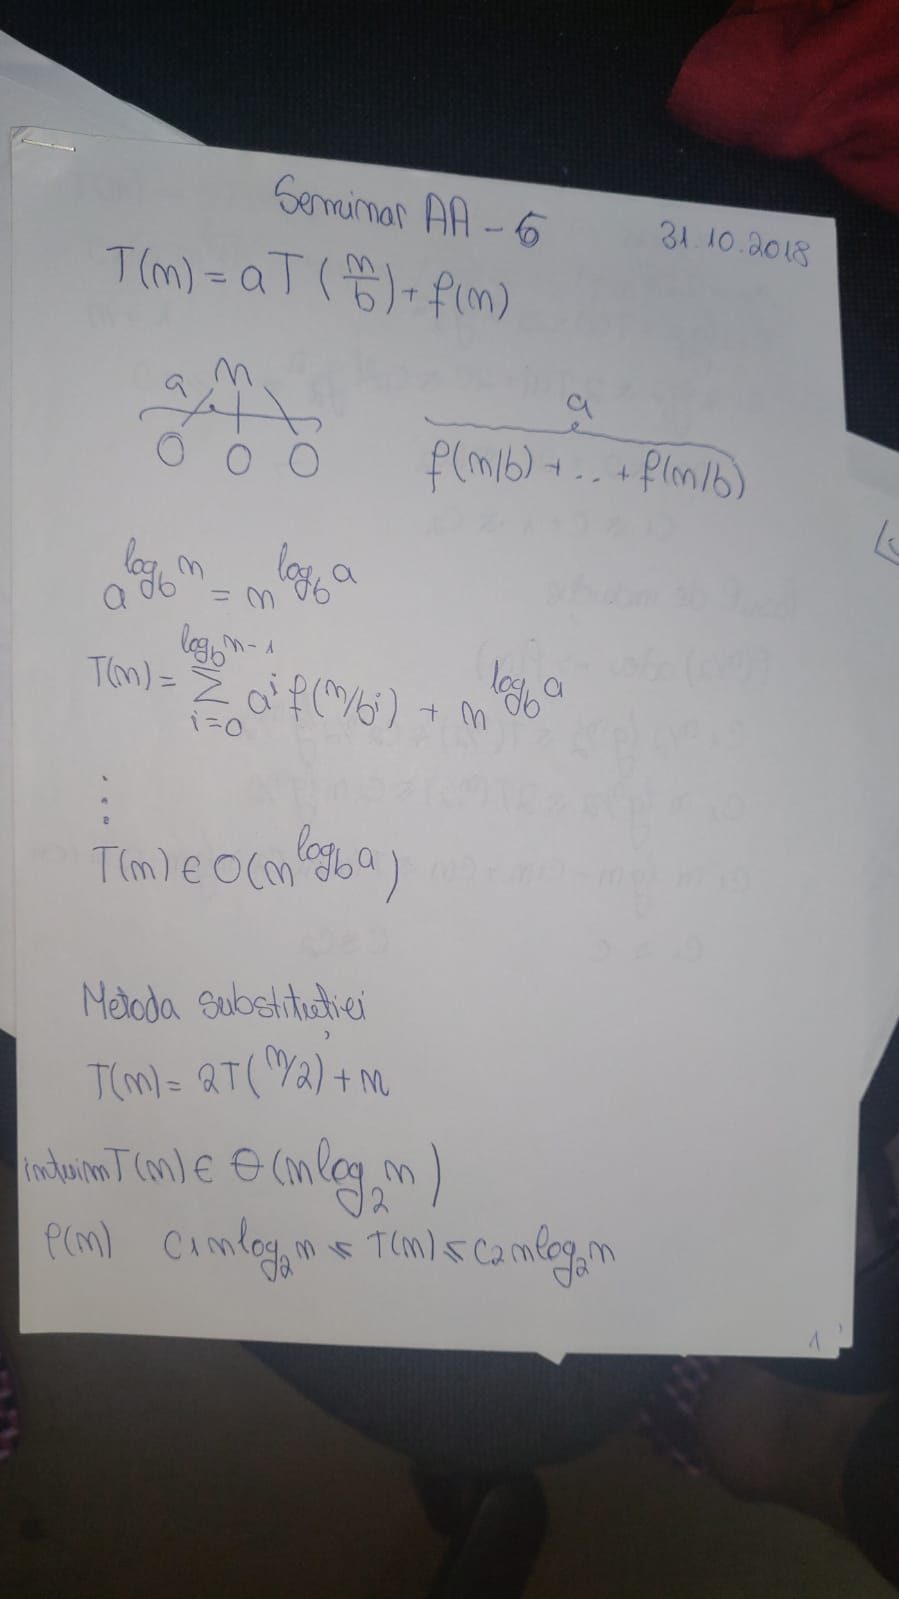 Seminar AA - 6
31.10.2018
T(n) = aT(n/b) + f(n)
a n
a
f(n/b) + .. + f(n/b)
a^{log_b n} = n^{log_b a}
T(n) = Σ_{i=0}^{log_b n - 1} a^i f(n/b^i) + n^{log_b a}
⋮
T(n) ∈ O(n^{log_b a})
Metoda substituției
T(n) = 2T(n/2) + n
intuim T(n) ∈ Θ(n log_2 n)
P(n) c1 n log_2 n ≤ T(n) ≤ c2 n log_2 n
1